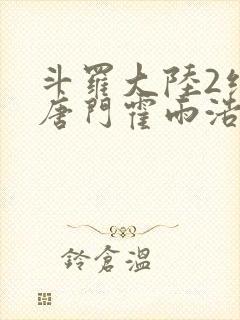 斗羅大陸2絕
唐門霍雨浩
鈴倉溫